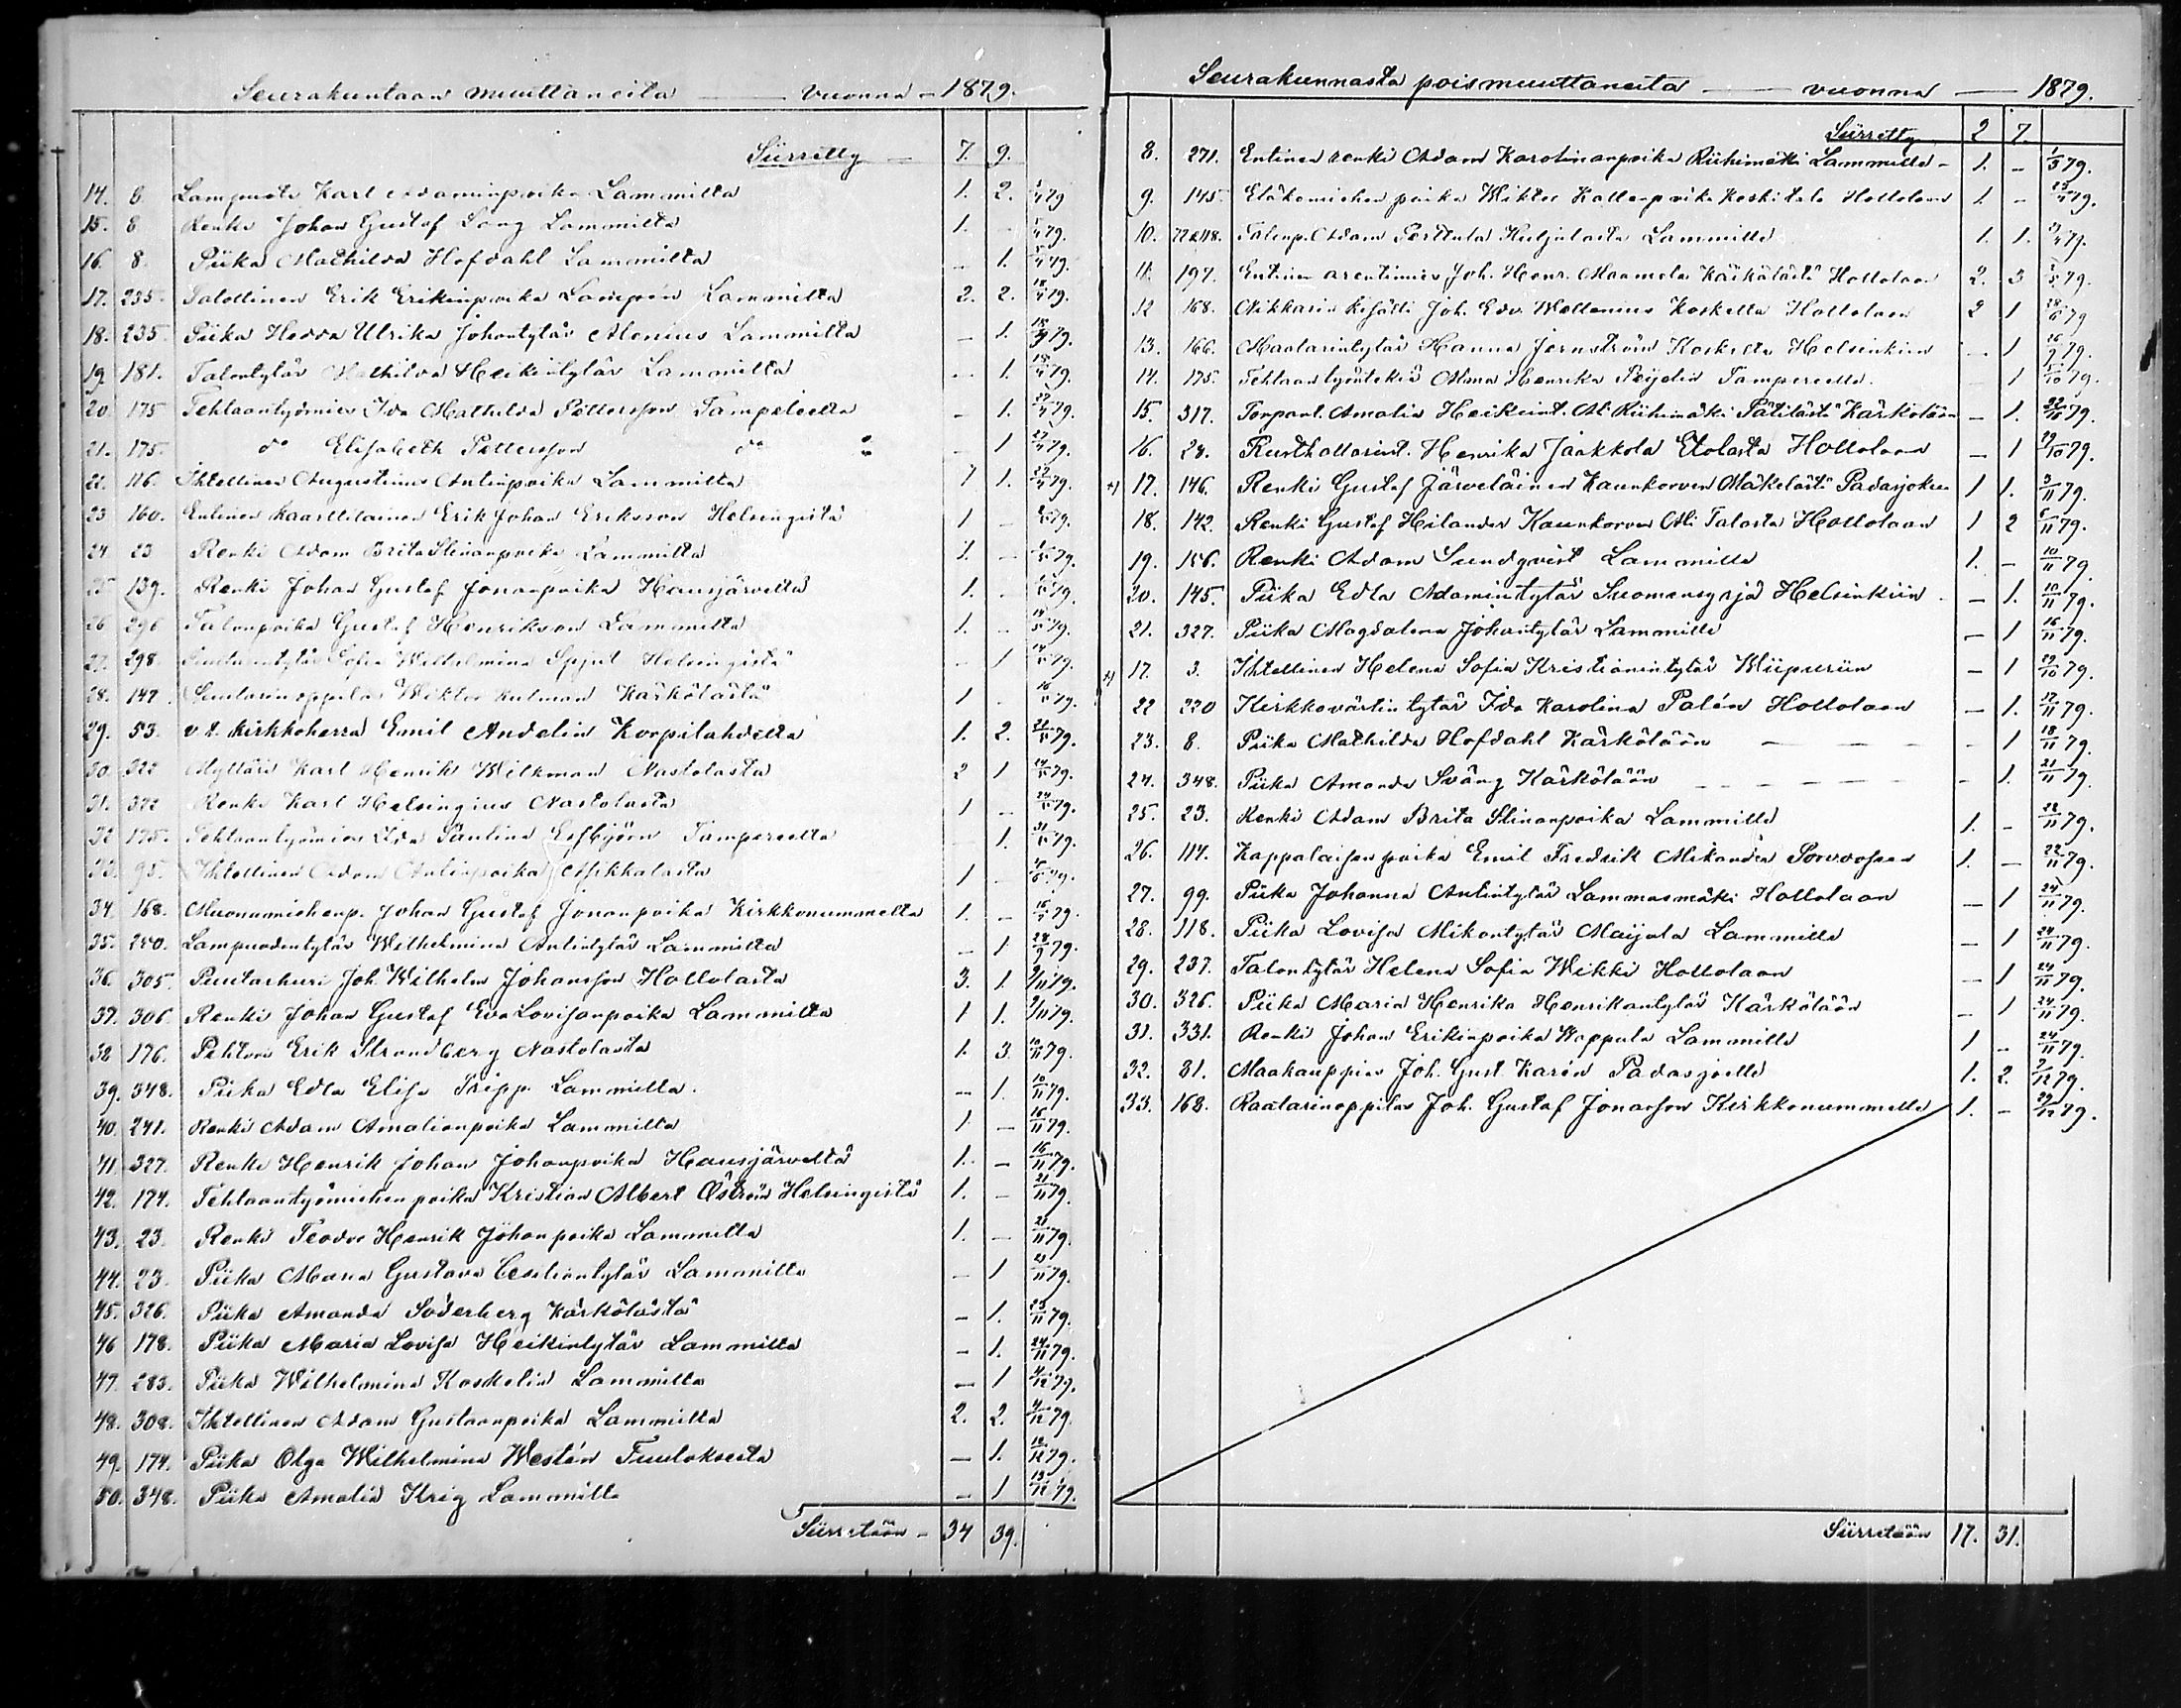 Seurakuntaan muuttaneita — vuonna — 1879.
Siirretty — 7. 9.
14. 8. Lampuoti Karl Adaminpoika Lammilta 1. 2. 79
15. 8 Renki Johan Gustaf Lang Lammilta 1. 79.
16. 8. Piika Mathilda Hofdahl Lammilta — 1. 79.
17. 235. Talollinen Erik Erikinpoika Lampén Lammilta 2. 2. 18/4 79.
18. 235. Piika Hedda Ulrika Johantytär Alenius Lammilta — 1. 18/4 79.
19. 181. Talontytär Mathilda Heikintytär Lammilta — 1. 18/4 79.
20. 175 Tehtaantyömies Ida Mathilda Pettersson Tampeleelta — 1. 27/4 79.
21. 175. do Elisabeth Pettersson do — 1 27/4 79.
22. 116. Ihtellinen Augustinus Antinpoika Lammilta 1 1. 79.
23 160. Entinen kaarttilainen Erik Johan Eriksson Helsingistä 1 - 79.
24. 23 Renki Adam Brita Stinanpoika Lammilta 1. — 79.
25 139. Renki Johan Gustaf Jonanpoika Hausjärveltä 1. - 79.
26 296 Talonpoika Gustaf Henrikson Lammilta 1. - 79.
27. 298. Sofia Wilhelmina Spjut Helsingistä - 1 79.
28. 147. Suutarinoppilas Wiktor Kulman Kärkölästä 1 - 79.
29. 53. v.t. kirkkoherra Emil Andelin Korpilahdelta 1. 2. 79.
30. 322 Mylläri Karl Henrik Wilkman Nastolasta 2 1 24/5 79.
31. 322 Renki Karl Helsingius Nastolasta 1 - 24/5 79.
32 175. Tehtaantyömies Ida Paulina Esbjörn Tampereelta 1. 31/5 79.
33. 95. Ihtellinen Adam Antinpoika Asikkalasta 1 - 79.
34. 168. Muonamiehenp. Johan Gustaf Jonanpoika Kirkkonummelta 1. - 79.
35. 240. Lampuodintytär Wilhelmina Antintytär Lammilta — 1 28/9 79.
36. 305. Puutarhuri Joh. Wilhelm Johansson Hollolasta 3. 1. 79.
37. 306. Renki Johan Gustaf Eva Lovisanpoika Lammilta 1 1. 79.
38 176. Pehtori Erik Strandberg Nastolasta 1. 3. 10/11 79.
39. 348. Piika Edla Elisa Tripp Lammilta. — 1. 10/11 79.
40. 241. Renki Adam Amalianpoika Lammilta 1. — 16/11 79.
41. 327. Renki Henrik Johan Johanpoika Hausjärveltä 1. — 16/11 79.
42. 174. Tehtaantyömiehen poika Kristian Albert Öström Helsingistä 1. — 21/11 79.
43. 23. Renki Teodor Henrik Johanpoika Lammilta 1. — 21/11 79.
44. 23. Piika Maria Gustava Cesiliantytär Lammilta — 1 21/11 79.
45. 326. Piika Amanda Söderberg Kärkölästä — 1. 23/11 79.
46 178. Piika Maria Lovisa Heikintytär Lammilta — 1. 24/11 79.
47. 283. Piika Wilhelmina Koskelin Lammilta — 1 4/12 79.
48. 308. Ihtellinen Adam Gustavanpoika Lammilta 2. 2. 4/12 79.
49. 174. Piika Olga Wilhelmina Westén Tuuloksesta — 1. 12/12 79.
50. 348. Piika Amalia Krig Lammilta — 1 13/12 79.
Siirretään — 34 39.
Seurakunnasta pois muuttaneita — vuonna — 1879.
Siirretty 2 7.
8. 271. Entinen renki Adam Karolinanpoika Riihimäki Lammille — 1. — 1/3 79.
9. 145. Eläkemiehen poika Wiktor Kallenpoika Koskitalo Hollolaan 1. — 79.
10. 72 & 118. Talonp. Adam Perttula Kuljulasta Lammille 1. 1. 79.
11. 197. Entinen arentimies Joh. Henr. Maamela Kärkölästä Hollolaan 2. 3 79.
12 168. Nikkarin kisälli Joh. Edv. Wellenius Koskelta Hollolaan 2 1 28/6 79
13. 166. Maalarintytär Hanna Jernström Koskelta Helsinkiin — 1 16/9 79.
14. 175. Tehtaantyöntekiä Alma Henrika Böijelin Tampereelle. 1 79.
15. 317. Torpant. Amalia Heikint. Ali Riihimäki Pätilästä Kärkölään — 1. 22/10 79.
16. 28. Rusthollarint. Henrika Jaakkola Etolasta Hollolaan — 1 29/10 79.
x) 17. 146. Renki Gustaf Järveläinen Kaunkorven Mäkelästä Padasjoken 1 1. 3/11 79.
18. 142. Renki Gustaf Helander Kaunkorven Ali Talasta Hollolaan 1 2 6/11 79.
19. 156. Renki Adam Sundqvist Lammille 1. — 10/11 79.
20. 145. Piika Edla Adamintytär Suomensyrjä Helsinkiin — 1. 10/11 79.
21. 327. Piika Magdalena Johantytär Lammille — 1 16/11 79.
x) 17. 3. Ihtellinen Helena Sofia Kristianintytär Wiipuriin — 1 29/10 79.
22 220 Kirkkovärtin tytär Ida Karolina Palén Hollolaan — 1. 17/11 79.
23. 8. Piika Mathilda Hofdahl Kärkölään — 1 18/11 79.
24. 348. Piika Amanda Sväng Kärkölään - 1. 21/11 79.
25. 23. Renki Adam Brita Stinanpoika Lammille 1. - 22/11 79.
26. 117. Kappalaisen poika Emil Fredrik Mekander Porvoosen 1. — 22/11 79.
27. 99. Piika Johanna Antintytär Lammasmäki Hollolaan — 1 24/11 79.
28. 118. Piika Lovisa Mikontytär Maijala Lammille — 1 24/11 79.
29. 237. Talontytär Helena Sofia Wikki Hollolaan — 1 24/11 79.
30. 326. Piika Maria Henrika Henrikantytär Kärkölään — 1 24/11 79.
31. 331. Renki Johan Erikinpoika Wappula Lammille 1 - 24/11 79.
32. 81. Maakauppias Joh. Gust. Karén Padasjoelle 1. 2. 9/12 79.
33. 168. Raatarinoppilas Joh. Gustaf Jonasson Kirkkonummelle 1. — 29/12 79.
Siirretään 17. 31.